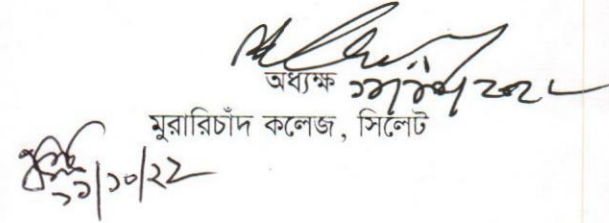 অধ্যক্ষ ১১/১০/২০২২
মুরারিচাঁদ কলেজ, সিলেট
১১/১০/২২